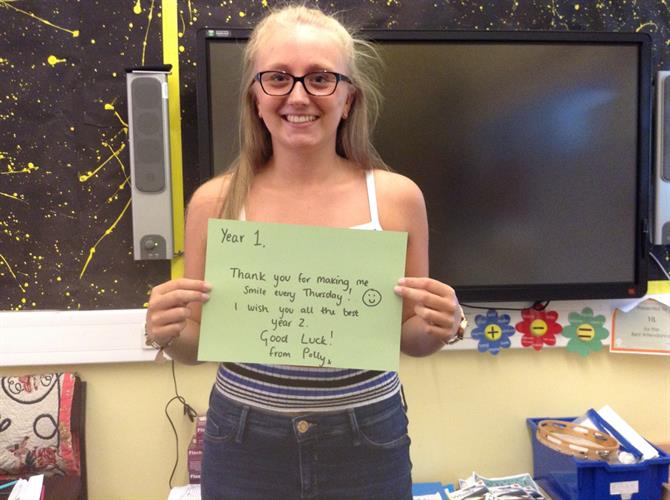 Year 1.
Thank you for making me
smile every Thursday!
I wish you all the best
year 2.
Good Luck!
from Polly x